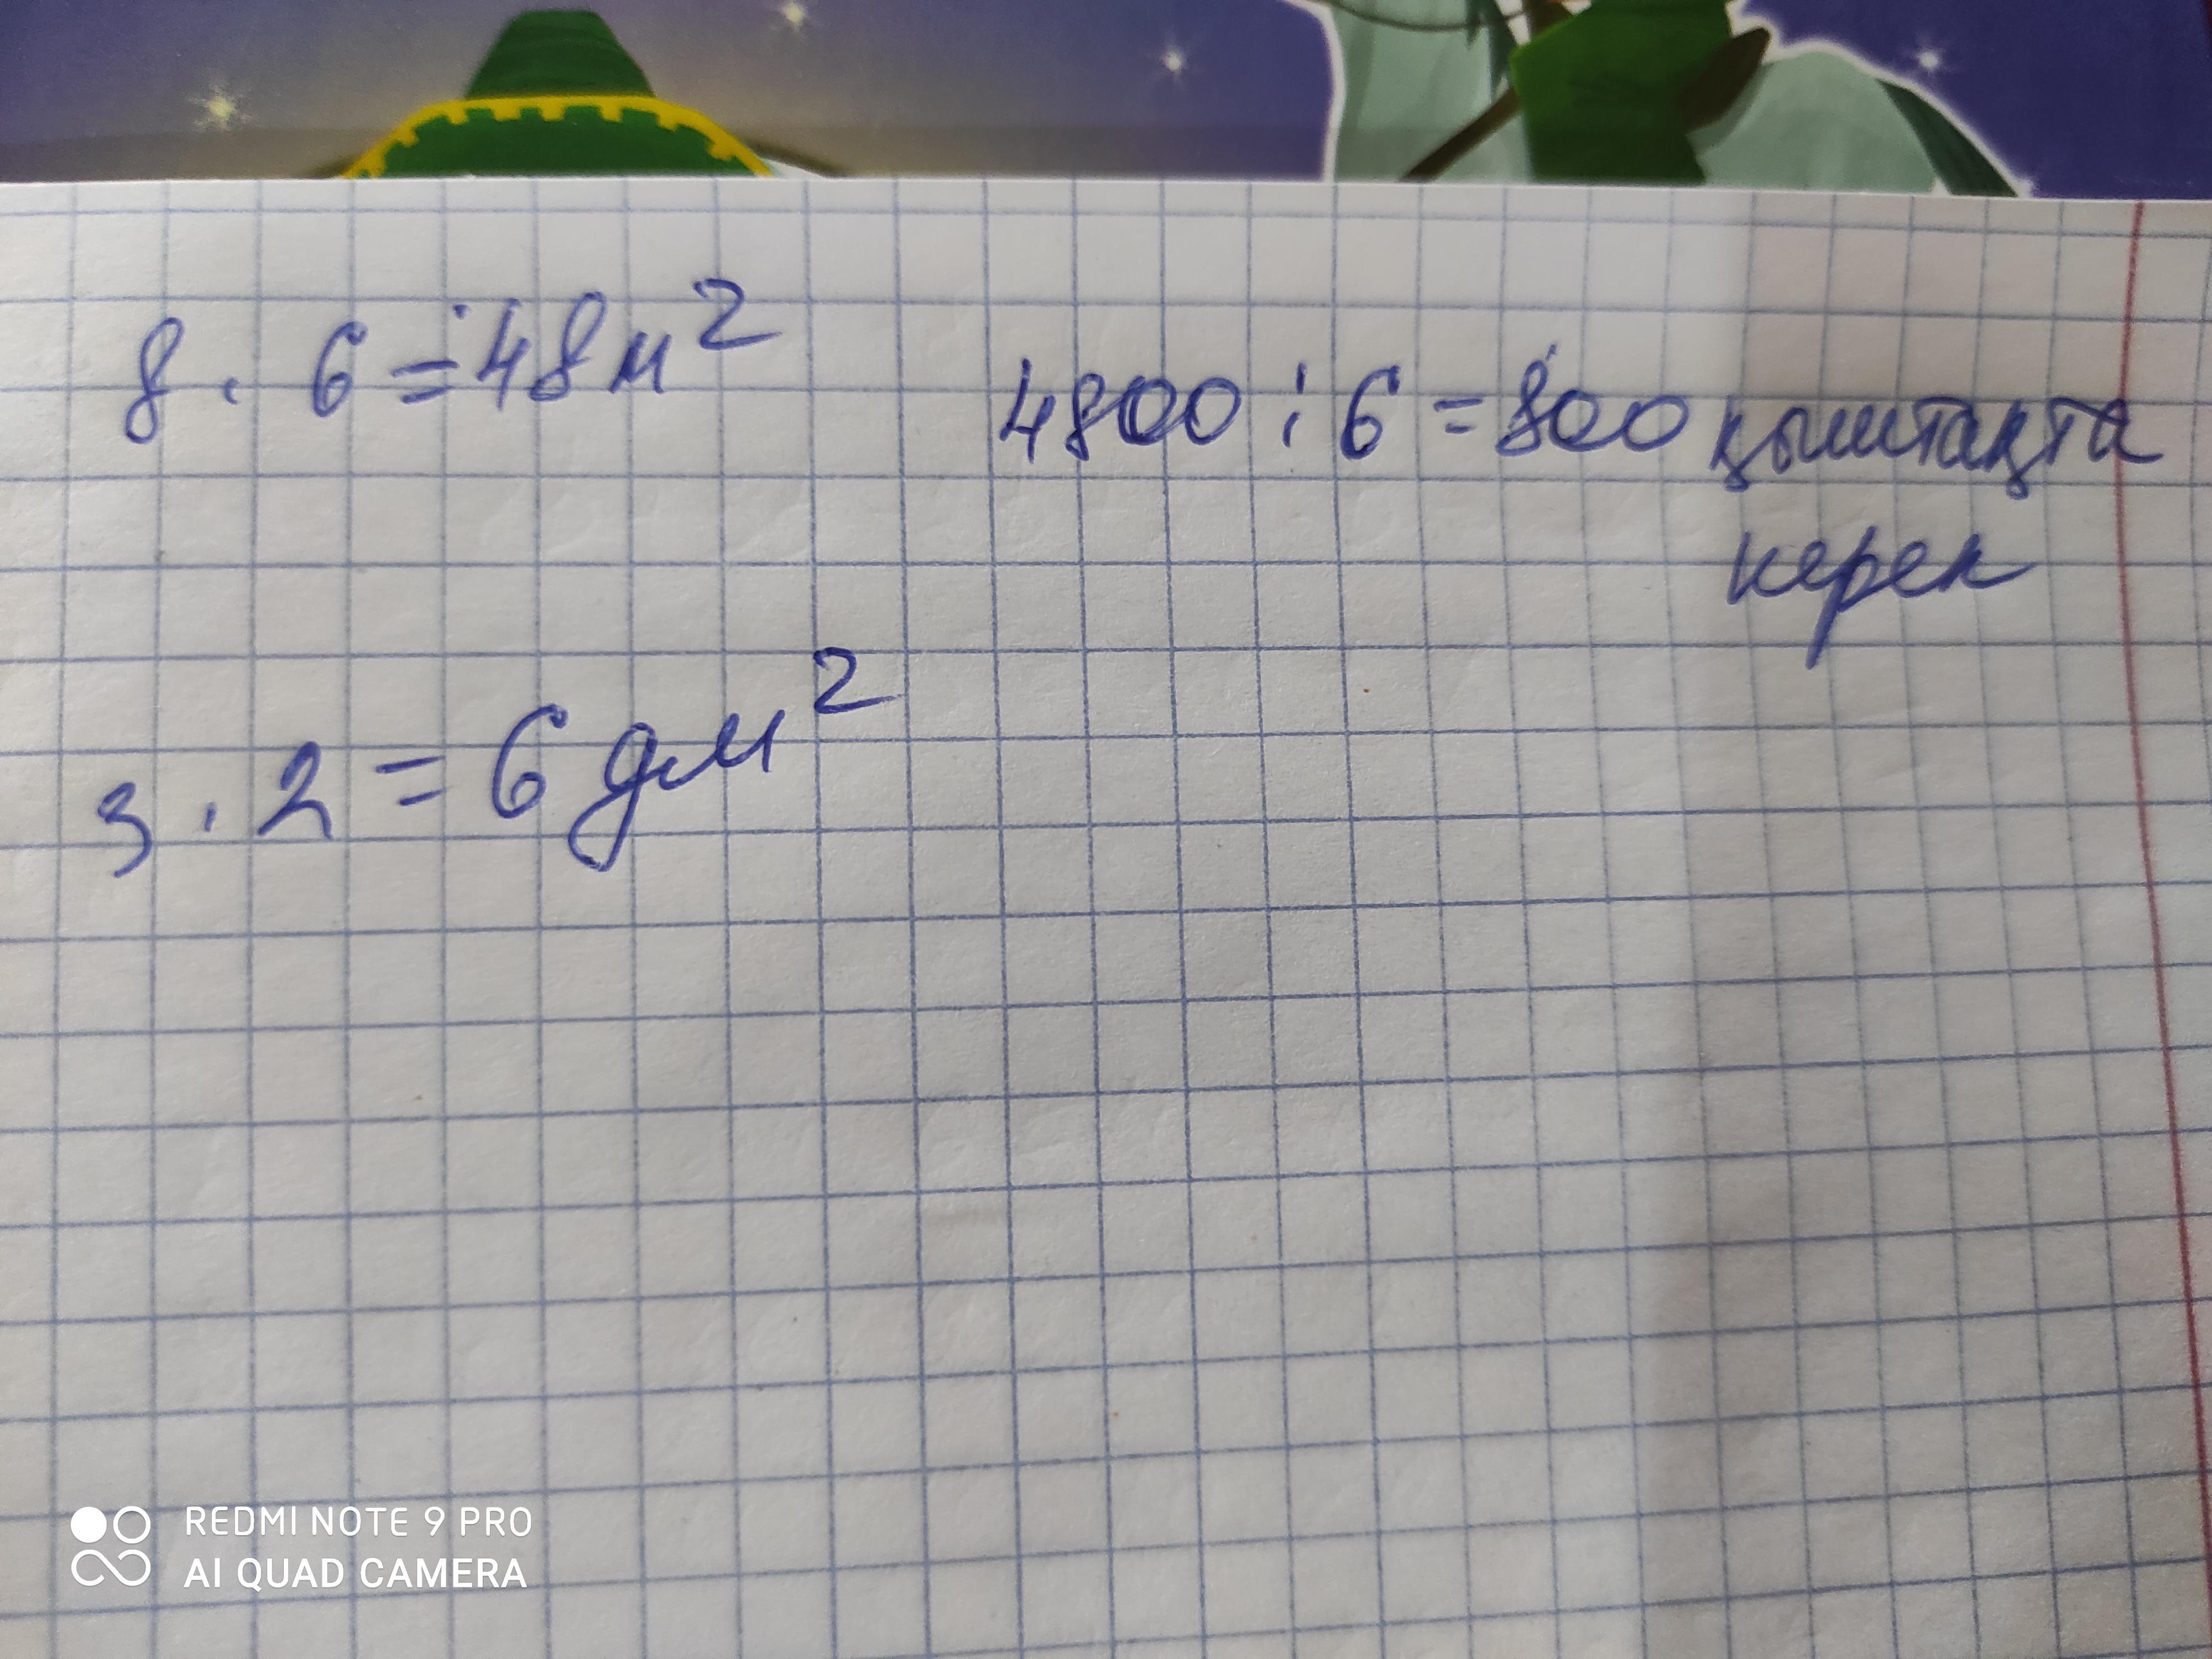 8 · 6 = 48 м²
4800 : 6 = 800 қыштақта
керек
3 · 2 = 6 дм²
REDMI NOTE 9 PRO
AI QUAD CAMERA